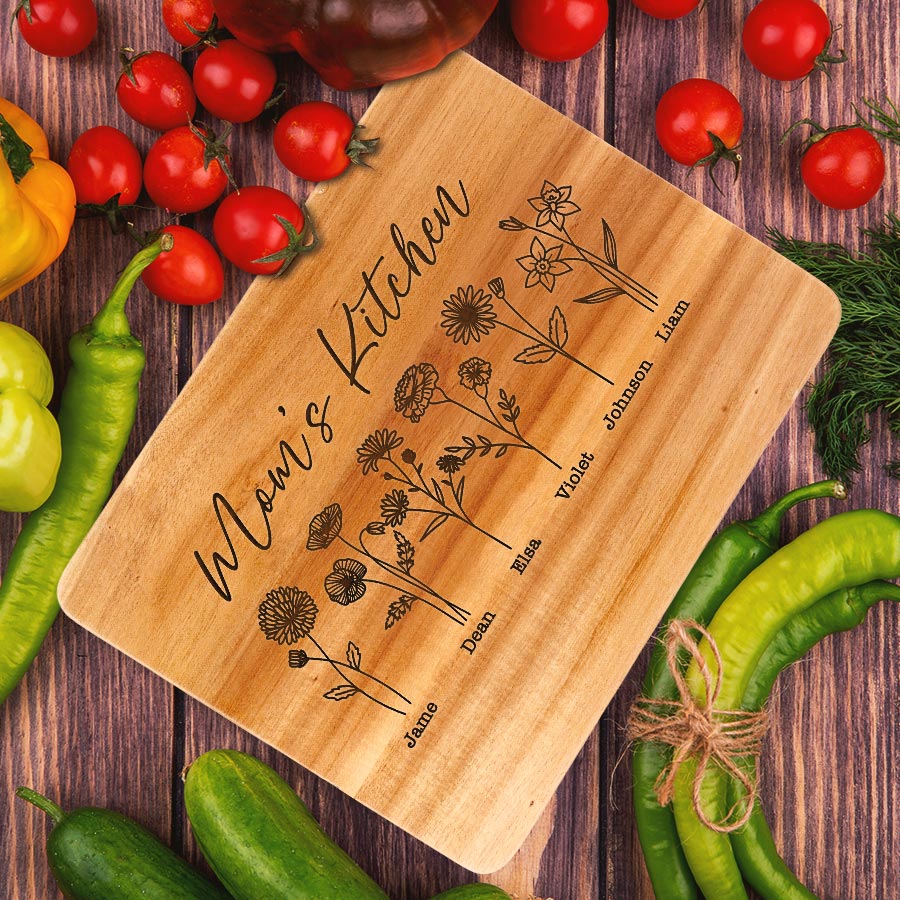 Mom's Kitchen
Jame
Dean
Elsa
Violet
Johnson
Liam